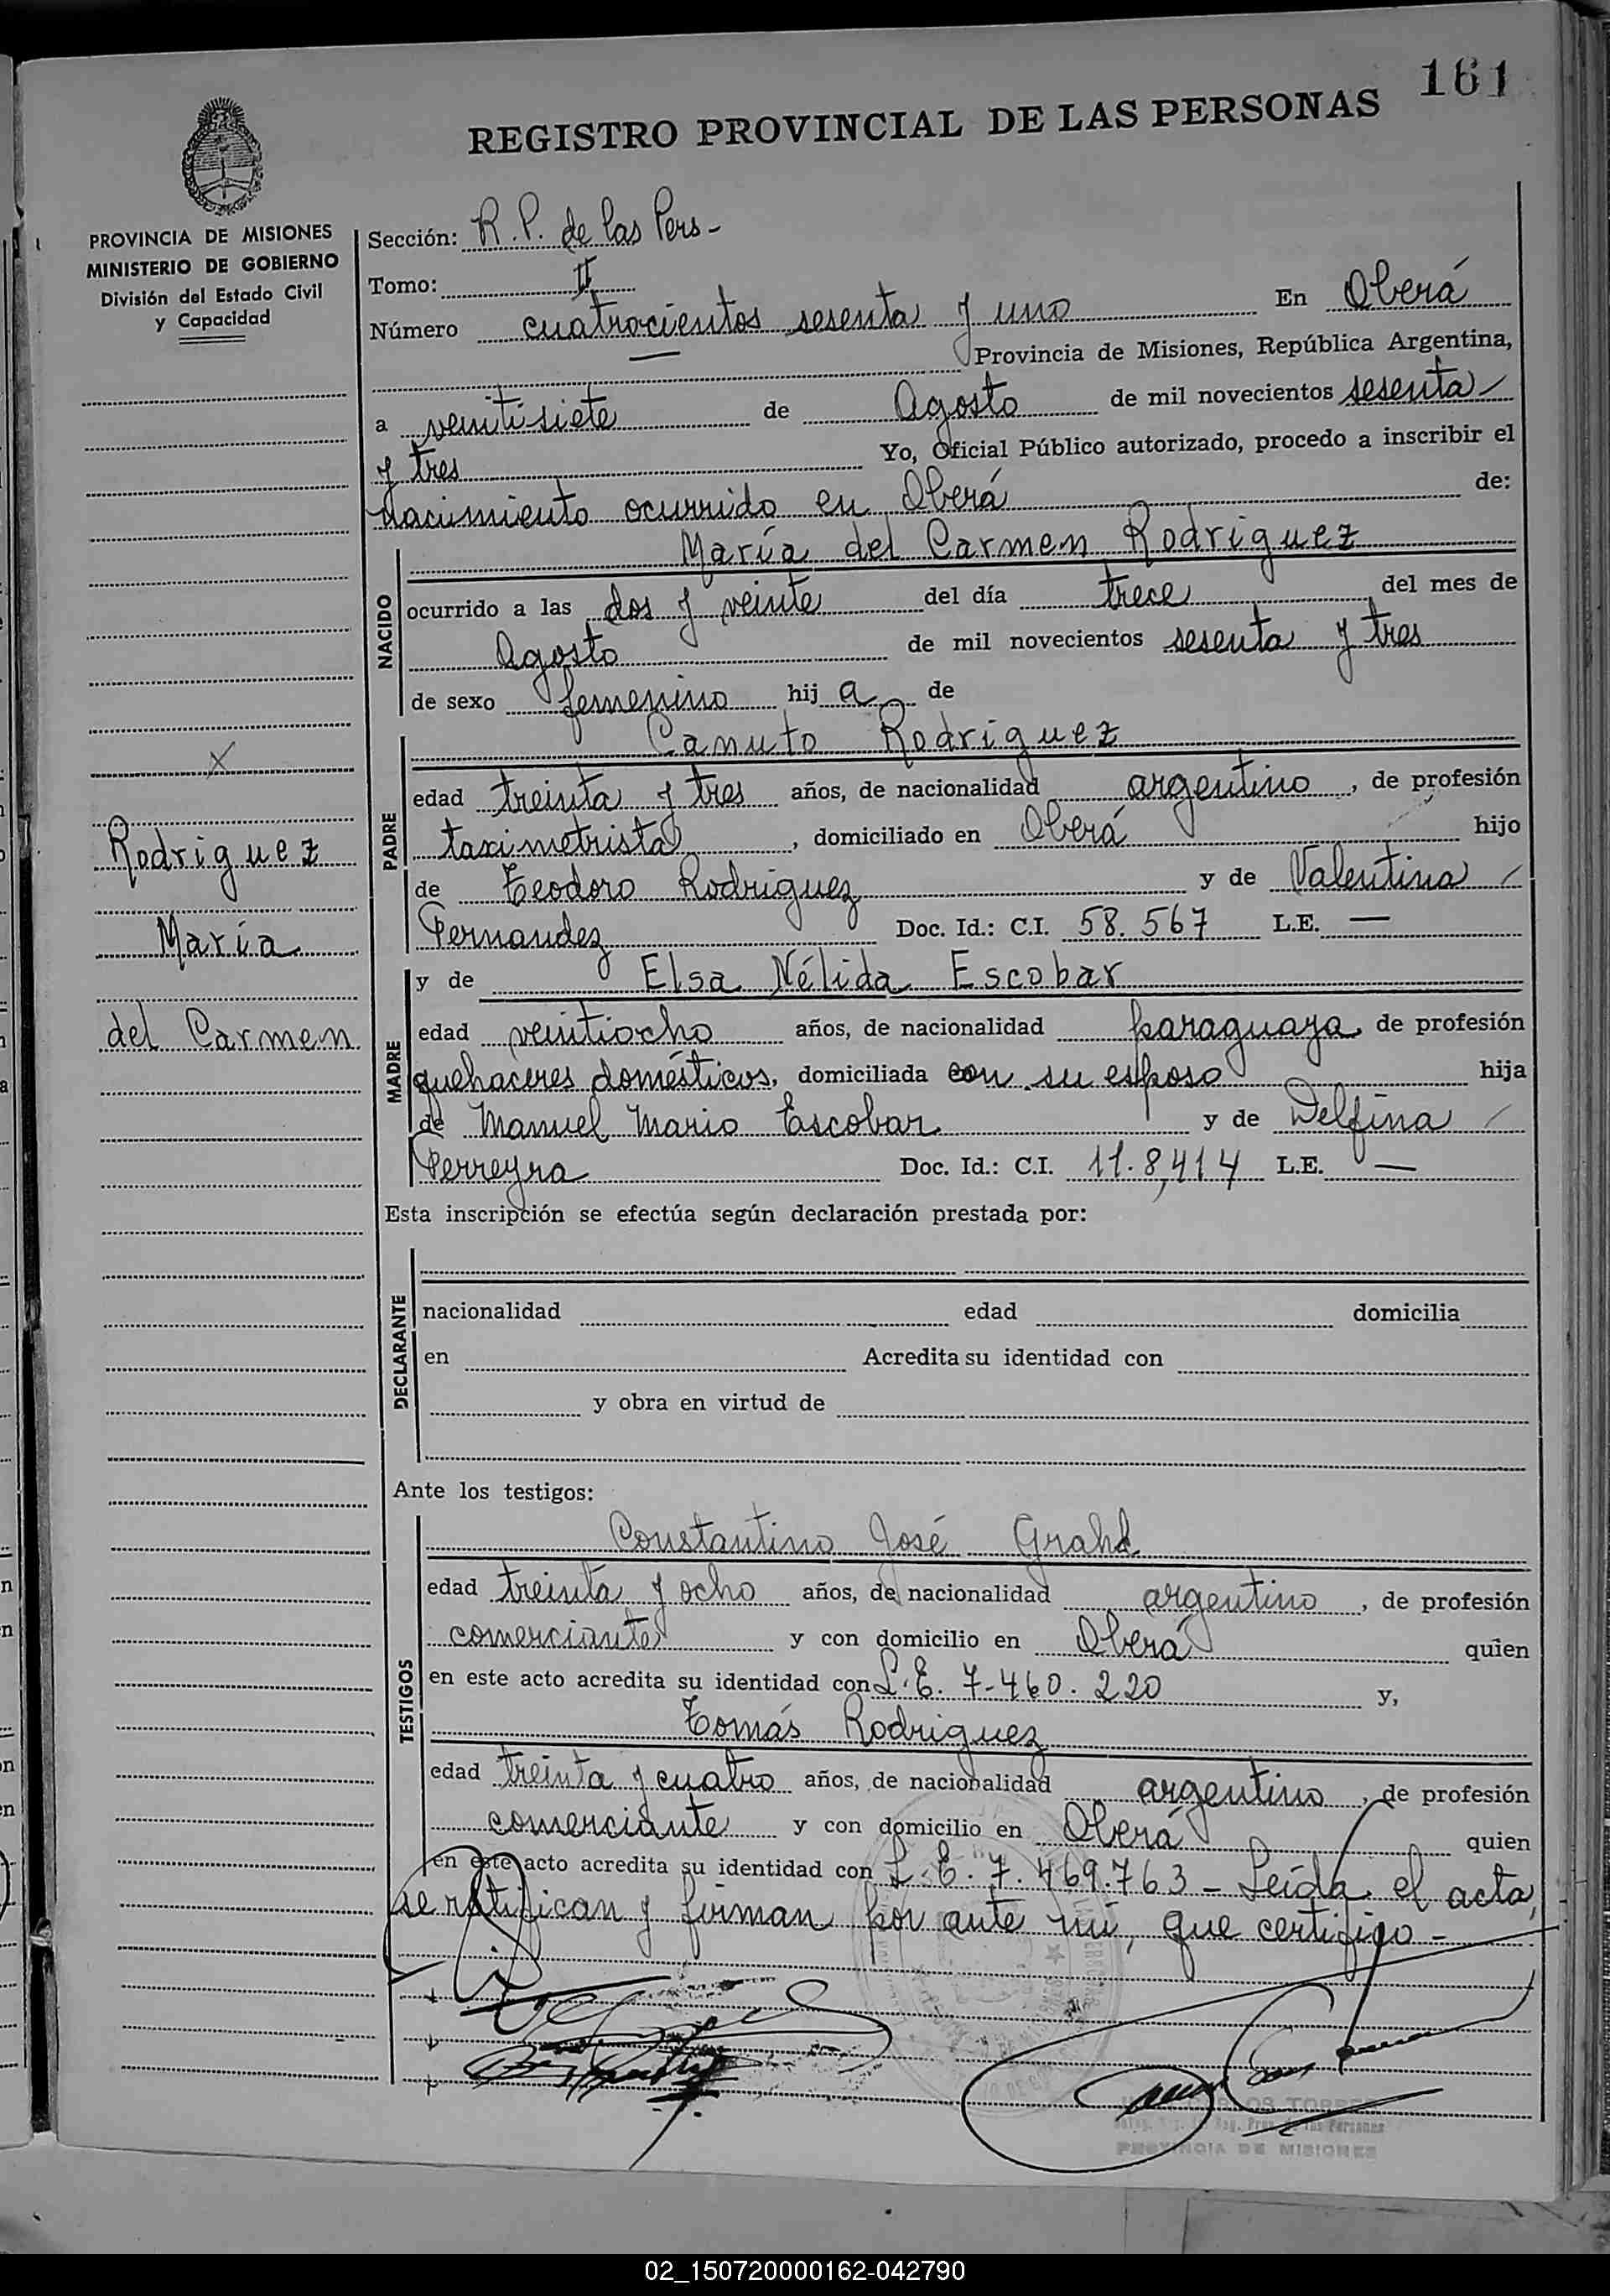 161
REGISTRO PROVINCIAL DE LAS PERSONAS
PROVINCIA DE MISIONES
MINISTERIO DE GOBIERNO
División del Estado Civil
y Capacidad
Sección: R. P. de las Pers -
Tomo: II
Número cuatrocientos sesenta y uno En Oberá
Provincia de Misiones, República Argentina,
a veintisiete de Agosto de mil novecientos sesenta
y tres Yo, Oficial Público autorizado, procedo a inscribir el
nacimiento ocurrido en Oberá de:
NACIDO
María del Carmen Rodriguez
ocurrido a las dos y veinte del día trece del mes de
Agosto de mil novecientos sesenta y tres
de sexo femenino hija de
PADRE
Canuto Rodriguez
edad treinta y tres años, de nacionalidad argentino, de profesión
taximetrista, domiciliado en Oberá hijo
de Teodoro Rodriguez y de Valentina
Fernandez Doc. Id.: C.I. 58.567 L.E. —
MADRE
y de Elsa Nélida Escobar
edad veintiocho años, de nacionalidad paraguaya de profesión
quehaceres domésticos, domiciliada con su esposo hija
de Manuel Mario Escobar y de Delfina
Ferreyra Doc. Id.: C.I. 11.8,414 L.E. —
X
Rodriguez
María
del Carmen
Esta inscripción se efectúa según declaración prestada por:
DECLARANTE
nacionalidad edad domicilia
en Acredita su identidad con
y obra en virtud de
Ante los testigos:
TESTIGOS
Constantino José
edad treinta y ocho años, de nacionalidad argentino, de profesión
comerciante y con domicilio en Oberá quien
en este acto acredita su identidad con L. E. 7-460.220 y,
Tomás Rodriguez
edad treinta y cuatro años, de nacionalidad argentino, de profesión
comerciante y con domicilio en Oberá quien
en este acto acredita su identidad con L. E. 7.469.763 - Leída el acta,
se ratifican y firman por ante mí, que certifico -
PROVINCIA DE MISIONES
02_150720000162-042790